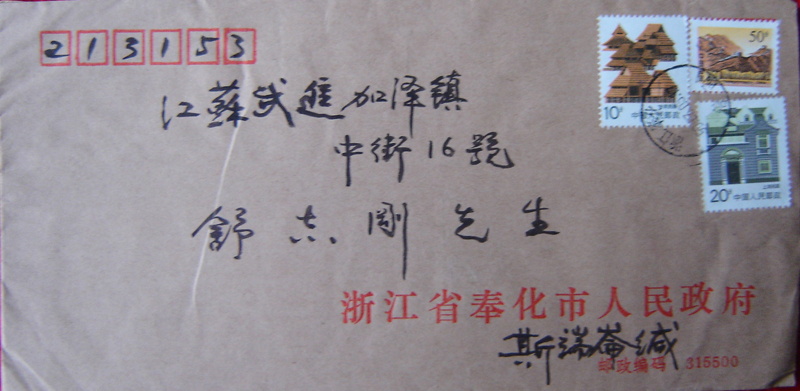 213153
50分
江蘇武進加泽镇
10分
中国人民邮政
中街16號
20分
中国人民邮政
舒志剛先生
浙江省奉化市人民政府
斯端崙缄
邮政编码 315500